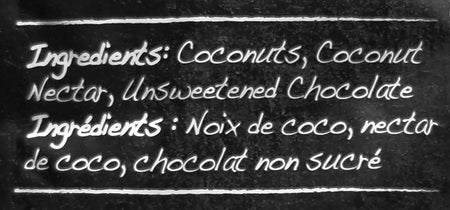 Ingredients: Coconuts, Coconut
Nectar, Unsweetened Chocolate
Ingrédients : Noix de coco, nectar
de coco, chocolat non sucré